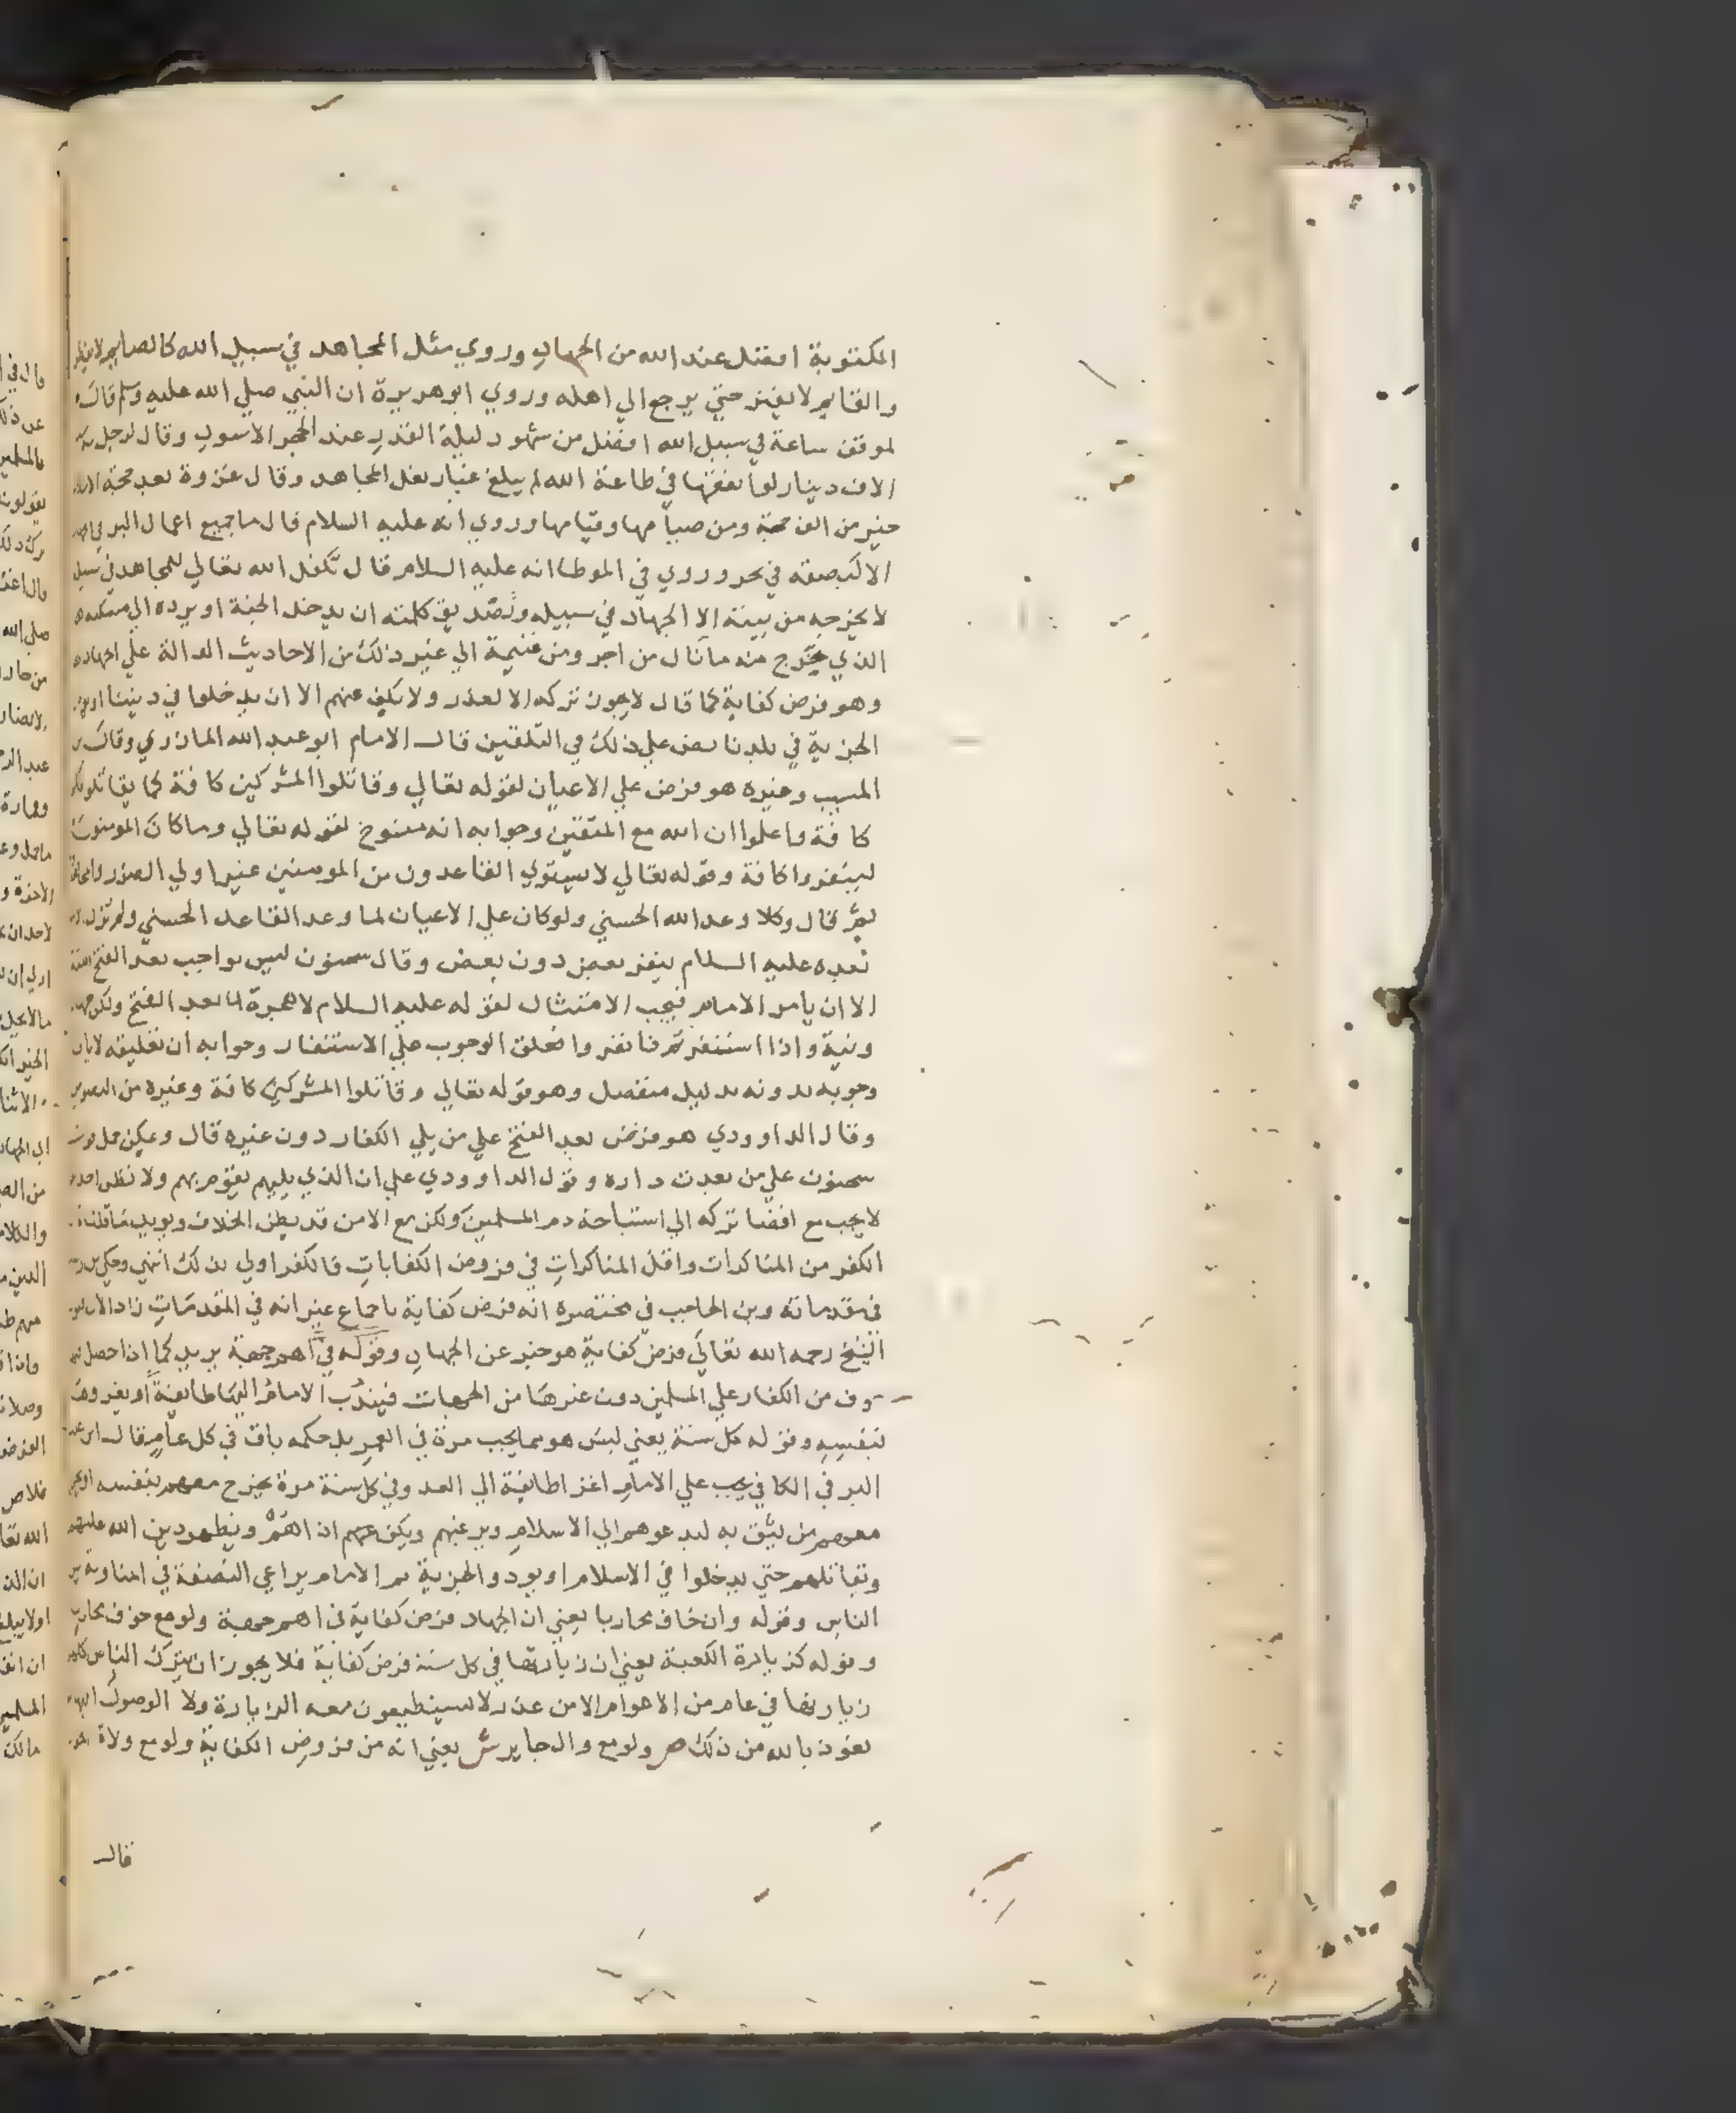 المكتوبة افضل عند الله من الجهاد وروي مثل المجاهد في سبيل الله كالصايم لا يفطر
والقايم لا يفتر حتي يرجع الي اهله وروي ابو هريرة ان النبي صلي الله عليه وسلم قال
لموقف ساعة في سبيل الله افضل من شهود ليلة القدر عند الحجر الاسود وقال لرجل
الاف دينار لو انفقتها في طاعة الله لم يبلغ غبار نعل المجاهد وقال غزوة بعد حجة
خير من الف حجة ومن صيامها وقيامها وروي انه عليه السلام قال ما جميع اعمال البر في
الا كبصقه في بحر وروي في الموطا انه عليه السلام قال تكفل الله تعالي للمجاهد في
لا يخرجه من بيته الا الجهاد في سبيله وتصديق كلمته ان يدخل الجنة او يرده الي مسكنه
الذي يخرج منه ما نال من اجر ومن غنيمة الي غير ذلك من الاحاديث الدالة علي الجهاد
وهو فرض كفاية كما قال لا يجوز تركه الا لعذر ولا يكف عنهم الا ان يدخلوا في ديننا
الجزية في بلدنا نص علي ذلك في التلقين قال الامام ابو عبد الله المازري وقال
المسيب وغيره هو فرض علي الاعيان لقوله تعالي وقاتلوا المشركين كافة كما يقاتلونكم
كافة واعلموا ان الله مع المتقين وجوابه انه منسوخ لقوله تعالي وما كان المومنون
لينفروا كافة وقوله تعالي لا يستوي القاعدون من المومنين غير اولي الضرر
ثم قال وكلا وعد الله الحسني ولو كان علي الاعيان لما وعد القاعد الحسني ولم تزل
بعده عليه السلام ينفر بعض دون بعض وقال سحنون ليس بواجب بعد الفتح
الا ان يامر الامام فيجب الامتثال لقوله عليه السلام لا هجرة بعد الفتح ولكن
ونية واذا استنفرتم فانفروا فعلق الوجوب علي الاستنفار وجوابه ان تعليقه
وجوبه بدونه بدليل منفصل وهو قوله تعالي وقاتلوا المشركين كافة وغيره من
وقال الداوودي هو فرض بعد الفتح علي من يلي الكفار دون غيره قال ويمكن حمل
سحنون علي من بعدت داره وقول الداوودي علي ان الذي يليهم يقوم بهم ولا نظن
لا يجب مع افضا تركه الي استباحة دم المسلمين ولكن مع الامن قد يظن الخلاف ويويد
الكفر من المناكرات واقل المناكرات في فروض الكفايات فالكفر اولي بذلك انتهي وحكي
في مقدماته وبن الحاجب في مختصره انه فرض كفاية باجماع غير انه في المقدمات زاد
الشيخ رحمه الله تعالي فرض كفاية هو خبر عن الجهاد وقوله في اهم جهة يريد كما اذا حصل
خوف من الكفار علي المسلمين دون غيرها من الجهات فيندب الامام اليها طايفة او يغزوها
بنفسه وقوله كل سنة يعني ليس هو مما يجب مرة في العمر بل حكمه باق في كل عام قال ابن عبد
البر في الكافي يجب علي الامام اغزا طايفة الي العدو في كل سنة مرة يخرج معهم بنفسه او
معهم من يثق به ليدعوهم الي الاسلام ويرغبهم ويكف عنهم ويظهر دين الله عليهم
ويقاتلهم حتي يدخلوا في الاسلام او يودوا الجزية ثم الامام يراعي النصفة في المناوبة بين
الناس وقوله وان خاف محاربا يعني ان الجهاد فرض كفاية في اهم جهة ولو مع خوف
وقوله كزيارة الكعبة يعني ان زيارتها في كل سنة فرض كفاية فلا يجوز ان يترك الناس
زيارتها في عام من الاعوام الا من عذر لا يستطيعون معه الزيارة ولا الوصول اليها
نعوذ بالله من ذلك ص ولو مع وال جاير ش يعني انه من فروض الكفاية ولو مع ولاة
قال